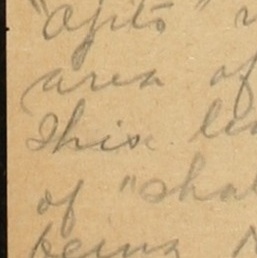 "Ojito"
area of
This
of "shal
being